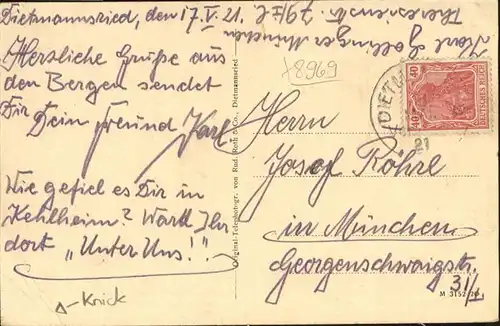 Dietmannsried, den 17.V.21.
Herzliche Grüße aus
den Bergen sendet
Dir Dein Freund Karl
Wie gefiel es Dir in
Kehlheim? Wart Ihr
dort „Unter Uns!“.
Knick
Karl Zollinger München
Theresienstr. 79/I. l.
Original-Telephotogr. von Rud. Roth & Co., Dietmannsried
+8969
DIETM
21
40 40
40
DEUTSCHES REICH
Herrn
Josef Röhrl
in München
Georgenschwaigstr.
31/I.
M 3152 20